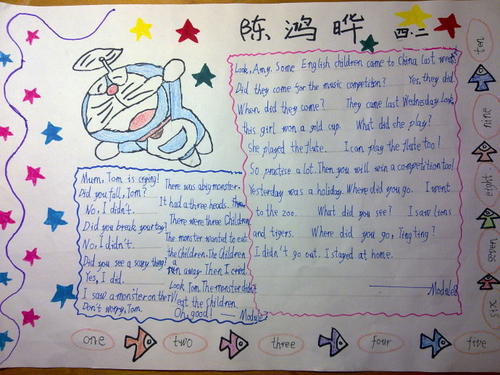 陈鸿晔
四.二
Look, Amy. Some English children came to China last week.
Did they come for the music competition? Yes, they did.
When did they come? They came last Wednesday. Look,
this girl won a gold cup. What did she play?
She played the flute. I can play the flute too!
So, practise a lot. Then you will win a competition too!
Yesterday was a holiday. Where did you go. I went
to the zoo. What did you see? I saw lions
and tigers. Where did you go, Ting ting?
I didn't go out. I stayed at home.
Module8
Mum, Tom is crying!
Did you fall, Tom?
No, I didn't.
Did you break your toy?
No, I didn't.
Did you see a scary thing?
Yes, I did.
I saw a monster on the TV
Don't worry, Tom.
There was a big monster.
It had a three heads.
There were three Children
The monster wanted to eat
the Children. The Children
ran away. Then I cried
Look Tom. The monster didn't
eat the Children.
Oh, good! Module
one
two
three
four
five
six
seven
eight
nine
ten